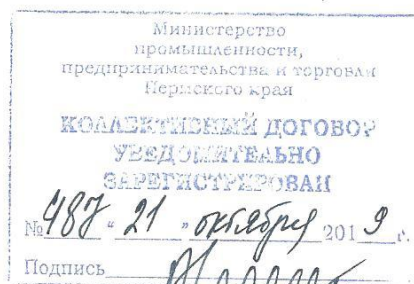 Министерство
промышленности,
предпринимательства и торговли
Пермского края
КОЛЛЕКТИВНЫЙ ДОГОВОР
УВЕДОМИТЕЛЬНО
ЗАРЕГИСТРИРОВАН
№ 487 "21" октября 2019 г.
Подпись